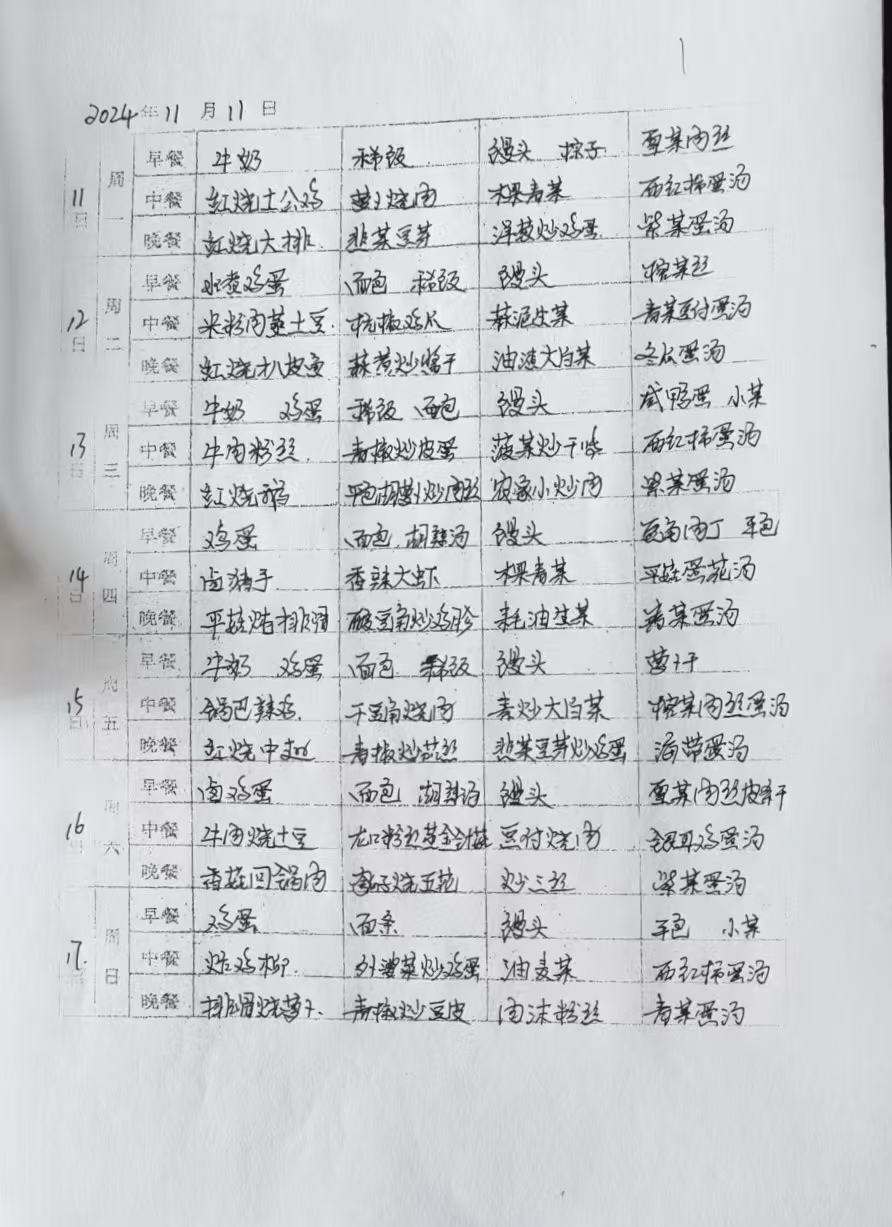 2024年11月11日
11日 周一 早餐 牛奶 稀饭 馒头 粽子 雪菜肉丝
中餐 红烧土公鸡 萝卜烧肉 稞青菜 西红柿蛋汤
晚餐 红烧大排 韭菜豆芽 洋葱炒鸡蛋 紫菜蛋汤
12日 周二 早餐 水煮鸡蛋 面包 稀饭 馒头 榨菜丝
中餐 米粉肉蒸土豆 杭椒鸡片 蒜泥生菜 青菜豆付蛋汤
晚餐 红烧扒皮鱼 蒜黄炒香干 油渣大白菜 冬瓜蛋汤
13日 周三 早餐 牛奶 鸡蛋 稀饭 面包 馒头 咸鸭蛋 小菜
中餐 牛肉粉丝 青椒炒皮蛋 菠菜炒千张 西红柿蛋汤
晚餐 红烧 胡萝卜炒肉丝 农家小炒肉 紫菜蛋汤
14日 周四 早餐 鸡蛋 面包 胡辣汤 馒头 豆角肉丁
中餐 卤猪手 香辣大虾 稞青菜 平菇蛋花汤
晚餐 平菇烧排骨 酸豆角炒鸡胗 耗油生菜 青菜蛋汤
15日 周五 早餐 牛奶 鸡蛋 面包 稀饭 馒头 萝卜干
中餐 锅巴辣鸡 干豆角烧肉 素炒大白菜 榨菜肉丝蛋汤
晚餐 红烧中翅 青椒炒 韭菜豆芽炒鸡蛋 海带蛋汤
16日 周六 早餐 卤鸡蛋 面包 胡辣汤 馒头 雪菜肉丝
中餐 牛肉烧土豆 龙口粉丝 豆付烧肉 银耳鸡蛋汤
晚餐 香菇回锅肉 烧五花 炒三丝 紫菜蛋汤
17日 周日 早餐 鸡蛋 面条 馒头 小菜
中餐 炸鸡柳 外婆菜炒鸡蛋 油麦菜 西红柿蛋汤
晚餐 排骨烧萝卜 青椒炒豆皮 肉沫粉丝 青菜蛋汤